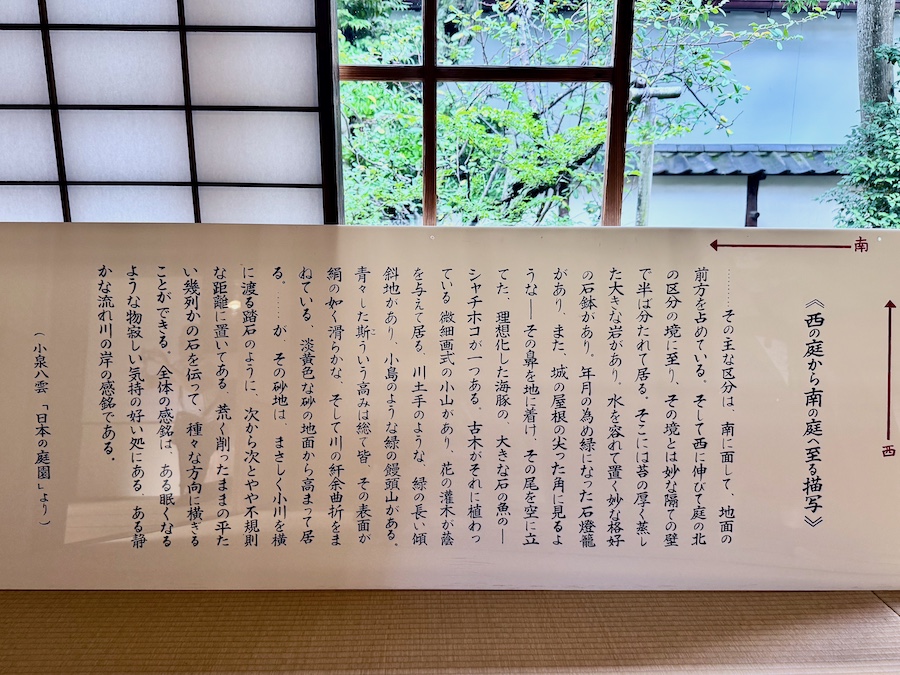 南
西
《西の庭から南の庭へ至る描写》
………その主な区分は、南に面して、地面の
前方を占めている。そして西に伸びて庭の北
の区分の境に至り、その境とは妙な隔ての壁
で半は分たれて居る。そこには苔の厚く蒸し
た大きな岩があり、水を容れて置く妙な格好
の石鉢があり。年月の為め緑になった石燈籠
があり、また、城の屋根の尖った角に見るよ
うな――その鼻を地に着け、その尾を空に立
てた、理想化した海豚の、大きな石の魚の――
シャチホコが一つある。古木がそれに植わっ
ている 微細画式の小山があり、花の灌木が蔭
を与えて居る、川土手のような、緑の長い傾
斜地があり、小島のような緑の饅頭山がある。
青々した斯ういう高みは総て皆、その表面が
絹の如く滑らかな、そして川の紆余曲折をま
ねている、淡黄色な砂の地面から高まって居
る。……が、その砂地は、まさしく小川を横
に渡る踏石のように、次から次とやや不規則
な距離に置いてある 荒く削ったままの平た
い幾列かの石を伝って、種々な方向に横ぎる
ことができる。全体の感銘は、ある眠くなる
ような物寂しい気持の好い処にある、ある静
かな流れ川の岸の感銘である。
(小泉八雲「日本の庭園」より)